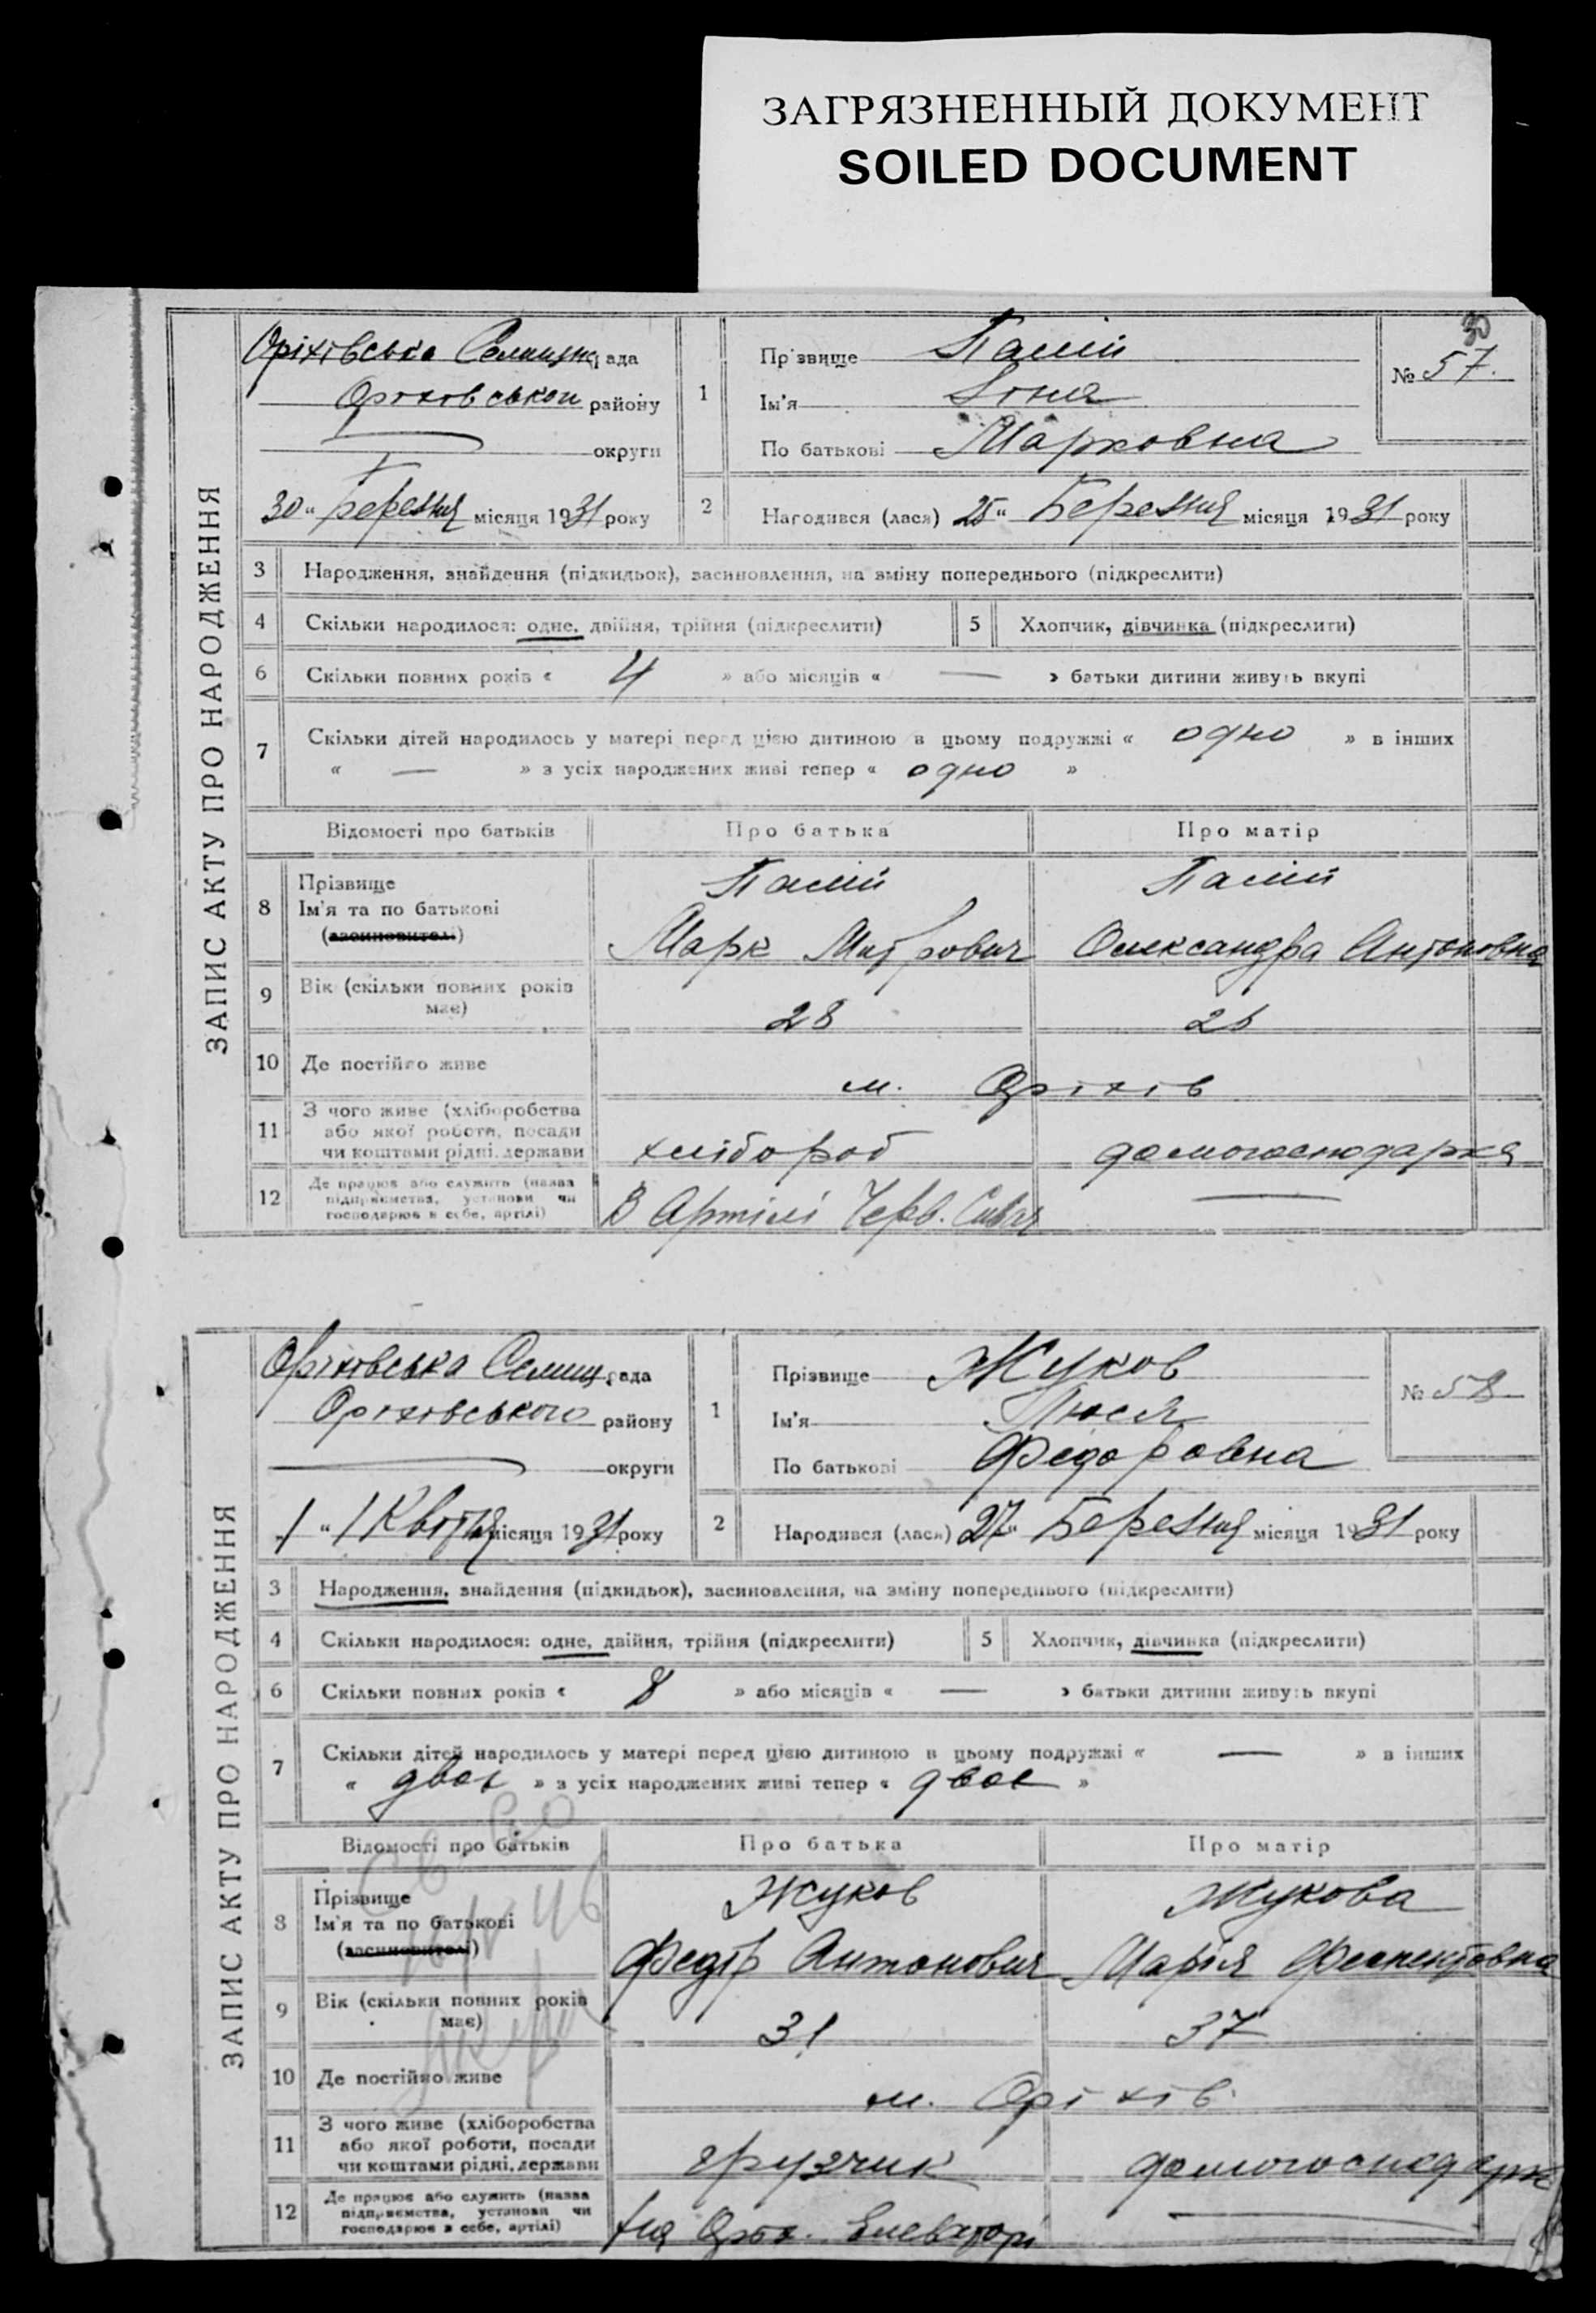 ЗАГРЯЗНЕННЫЙ ДОКУМЕНТ
SOILED DOCUMENT
30
ЗАПИС АКТУ ПРО НАРОДЖЕННЯ
Оріхівська Селищна рада
району
округи
30 " Березня місяця 1931 року
1
Прізвище Палій
Ім'я
По батькові Марковна
№ 57.
2
Народився (лася) 25 " Березня місяця 1931 року
3 Народження, знайдення (підкидьок), засиновлення, на зміну попереднього (підкреслити)
4 Скільки народилося: одне, двійня, трійня (підкреслити)
5 Хлопчик, дівчинка (підкреслити)
6 Скільки повних років « 4 » або місяців « — » батьки дитини живуть вкупі
7 Скільки дітей народилось у матері перед цією дитиною в цьому подружжі « одно » в інших
« — » з усіх народжених живі тепер « одно »
Відомості про батьків Про батька Про матір
8 Прізвище
Ім'я та по батькові
(засиновителі)
Палій Палій
Марк Олександра Антоновна
9 Вік (скільки повних років
має)
28
10 Де постійно живе
м. Оріхів
11 З чого живе (хліборобства
або якої роботи, посади
чи коштами рідні, держави
хлібороб домогосподарка
12 Де працює або служить (назва
підприємства, установи чи
господарює в себе, артілі)
В Артілі Черв. —
ЗАПИС АКТУ ПРО НАРОДЖЕННЯ
Оріхівська Селищ. рада
Оріхівського району
округи
1 " Квітня місяця 1931 року
1
Прізвище Жуков
Ім'я Люся
По батькові Федоровна
№ 58
2
Народився (лася) 27 " Березня місяця 1931 року
3 Народження, знайдення (підкидьок), засиновлення, на зміну попереднього (підкреслити)
4 Скільки народилося: одне, двійня, трійня (підкреслити)
5 Хлопчик, дівчинка (підкреслити)
6 Скільки повних років « 8 » або місяців « — » батьки дитини живуть вкупі
7 Скільки дітей народилось у матері перед цією дитиною в цьому подружжі « — » в інших
« двое » з усіх народжених живі тепер « двое »
Відомості про батьків Про батька Про матір
8 Прізвище
Ім'я та по батькові
(засиновителі)
Жуков Жукова
Федір Антонович Марія
9 Вік (скільки повних років
має)
31 37
10 Де постійно живе
м. Оріхів
11 З чого живе (хліборобства
або якої роботи, посади
чи коштами рідні, держави
грузчик домогосподарк
12 Де працює або служить (назва
підприємства, установи чи
господарює в себе, артілі)
На Оріх. Елеваторі —